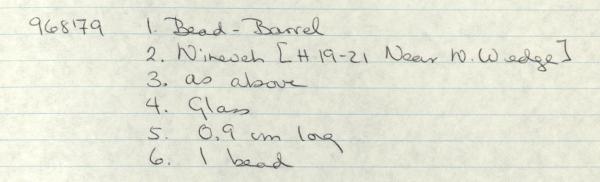 968179 1. Bead-Barrel
2. Nineveh [H 19-21 Near W. Wedge]
3. as above
4. Glass
5. 0.9 cm long
6. 1 bead